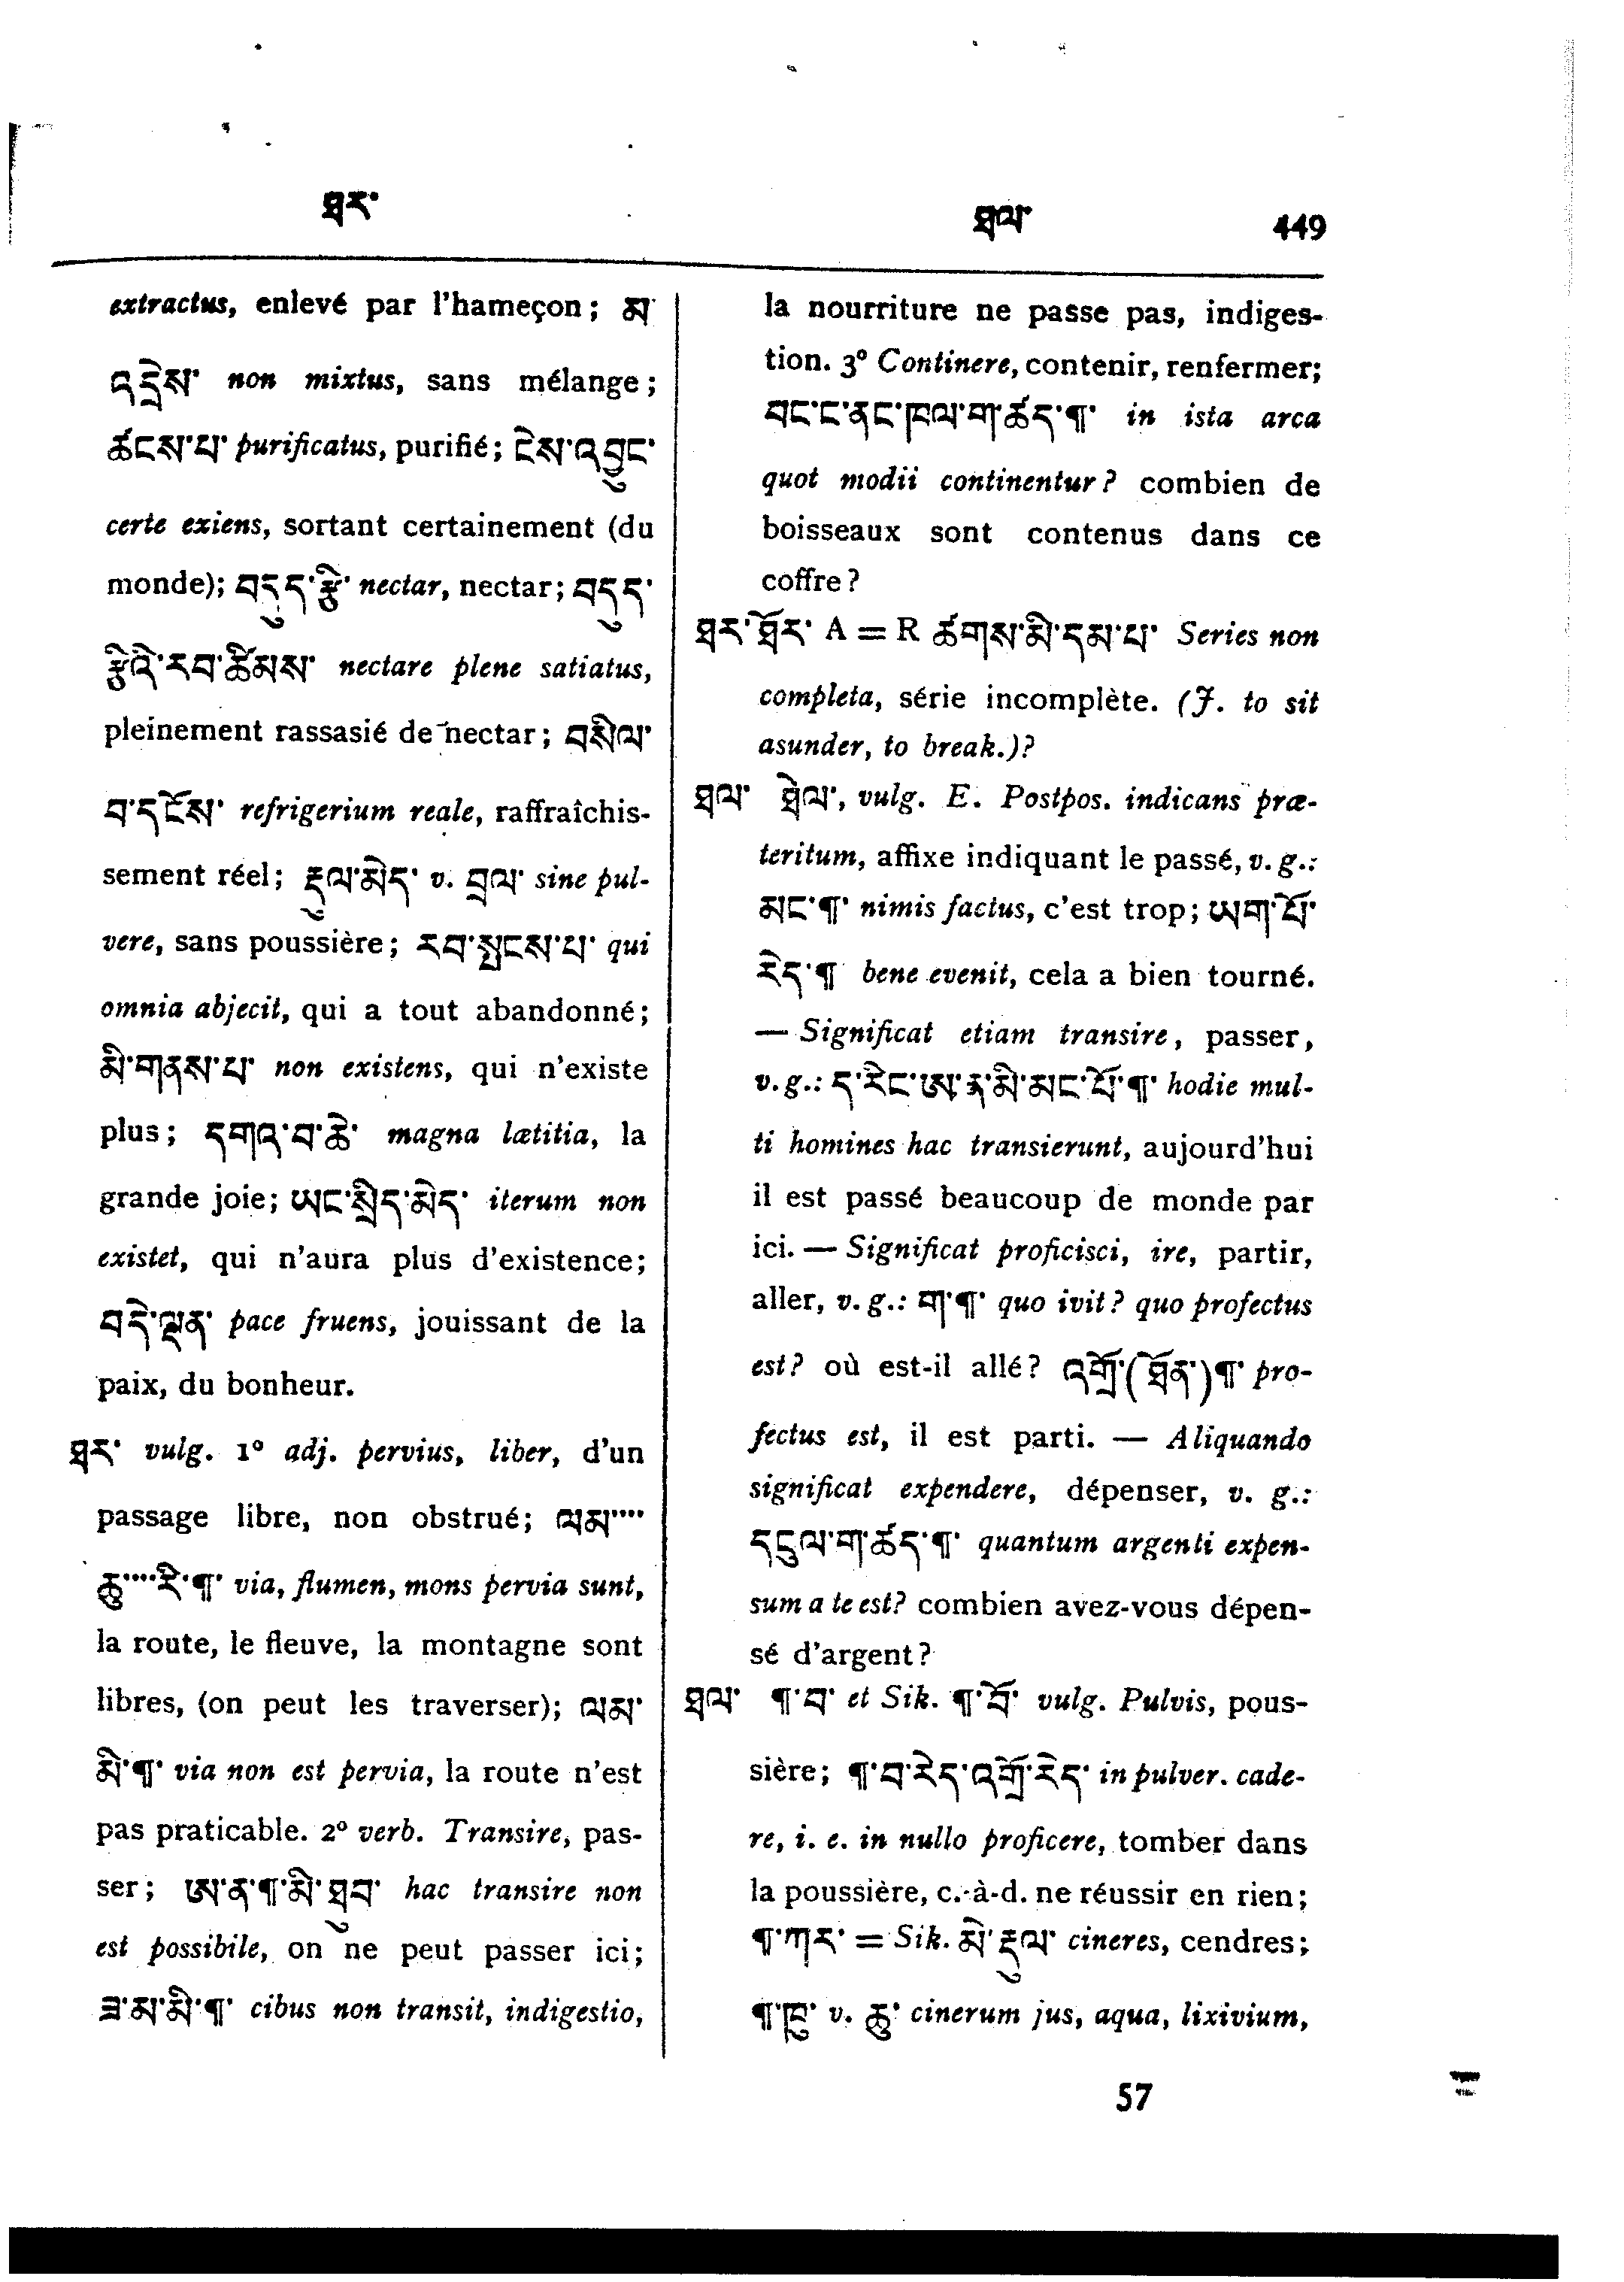 ཐར་
ཐལ་ 449
extractus, enlevé par l'hameçon; མ་
འདྲེས་ non mixtus, sans mélange;
ཚངས་པ་ purificatus, purifié; ངེས་འབྱུང་
certe exiens, sortant certainement (du
monde); བདུད་རྩི་ nectar, nectar; བདུད་
རྩིའི་རབ་ཚིམས་ nectare plene satiatus,
pleinement rassasié de nectar; བསིལ་
བ་དངོས་ refrigerium reale, raffraîchis-
sement réel; རྡུལ་མེད་ v. བྲལ་ sine pul-
vere, sans poussière; རབ་སྤངས་པ་ qui
omnia abjecit, qui a tout abandonné;
མི་གནས་པ་ non existens, qui n'existe
plus; དགའ་བ་ཆེ་ magna lætitia, la
grande joie; ཡང་སྲིད་མེད་ iterum non
existet, qui n'aura plus d'existence;
བདེ་ལྡན་ pace fruens, jouissant de la
paix, du bonheur.
ཐར་ vulg. 1º adj. pervius, liber, d'un
passage libre, non obstrué; ལམ་...
ཆུ་...རི་¶་ via, flumen, mons pervia sunt,
la route, le fleuve, la montagne sont
libres, (on peut les traverser); ལམ་
མི་¶་ via non est pervia, la route n'est
pas praticable. 2º verb. Transire, pas-
ser; ཨ་ན་¶་མི་ཐུབ་ hac transire non
est possibile, on ne peut passer ici;
ཟ་མ་མི་¶་ cibus non transit, indigestio,
la nourriture ne passe pas, indiges-
tion. 3º Continere, contenir, renfermer;
བང་ང་ནང་ཁལ་ག་ཚད་¶་ in ista arca
quot modii continentur? combien de
boisseaux sont contenus dans ce
coffre?
ཐར་ཐོར་ A = R ཚགས་མི་དམ་པ་ Series non
completa, série incomplète. (J. to sit
asunder, to break.)?
ཐལ་ ཐེལ་, vulg. E. Postpos. indicans præ-
teritum, affixe indiquant le passé, v. g.:
མང་¶་ nimis factus, c'est trop; ཡག་པོ་
རེད་¶ bene evenit, cela a bien tourné.
— Significat etiam transire, passer,
v. g.: ད་རིང་ཨ་ན་མི་མང་པོ་¶་ hodie mul-
ti homines hac transierunt, aujourd'hui
il est passé beaucoup de monde par
ici. — Significat proficisci, ire, partir,
aller, v. g.: ག་¶་ quo ivit? quo profectus
est? où est-il allé? འགྲོ་(ཐོན་)¶་ pro-
fectus est, il est parti. — Aliquando
significat expendere, dépenser, v. g.:
དངུལ་ག་ཚད་¶་ quantum argenti expen-
sum a te est? combien avez-vous dépen-
sé d'argent?
ཐལ་ ¶་བ་ et Sik. ¶་བོ་ vulg. Pulvis, pous-
sière; ¶་བ་རེད་འགྲོ་རེད་ in pulver. cade-
re, i. e. in nullo proficere, tomber dans
la poussière, c.-à-d. ne réussir en rien;
¶་ཀར་ = Sik. མེ་རྡུལ་ cineres, cendres;
¶་ཁུ་ v. ཆུ་ cinerum jus, aqua, lixivium,
57